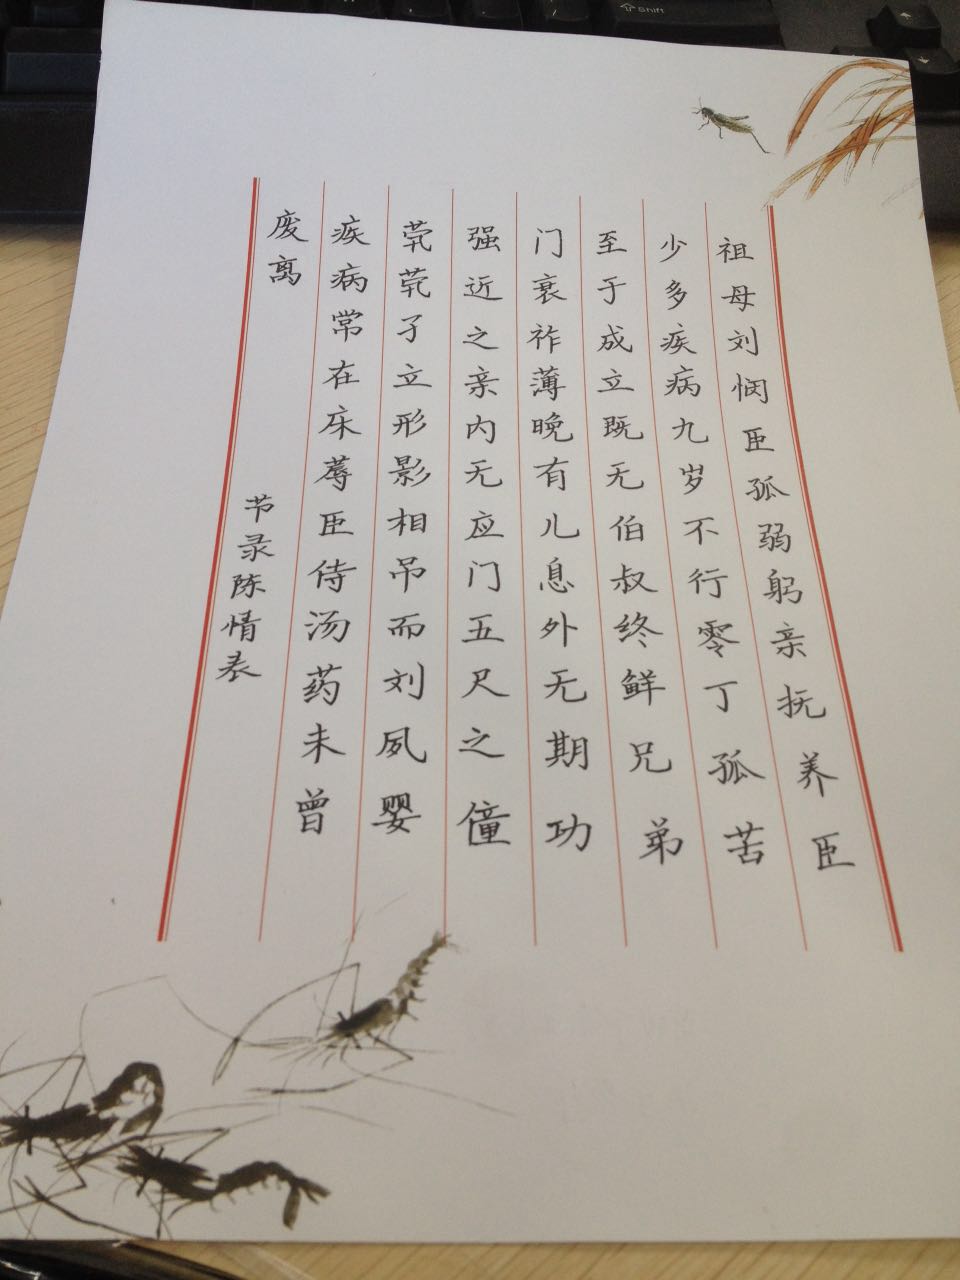 祖母刘悯臣孤弱躬亲抚养臣
少多疾病九岁不行零丁孤苦
至于成立既无伯叔终鲜兄弟
门衰祚薄晚有儿息外无期功
强近之亲内无应门五尺之僮
茕茕孑立形影相吊而刘夙婴
疾病常在床蓐臣侍汤药未曾
废离
节录陈情表
Shift